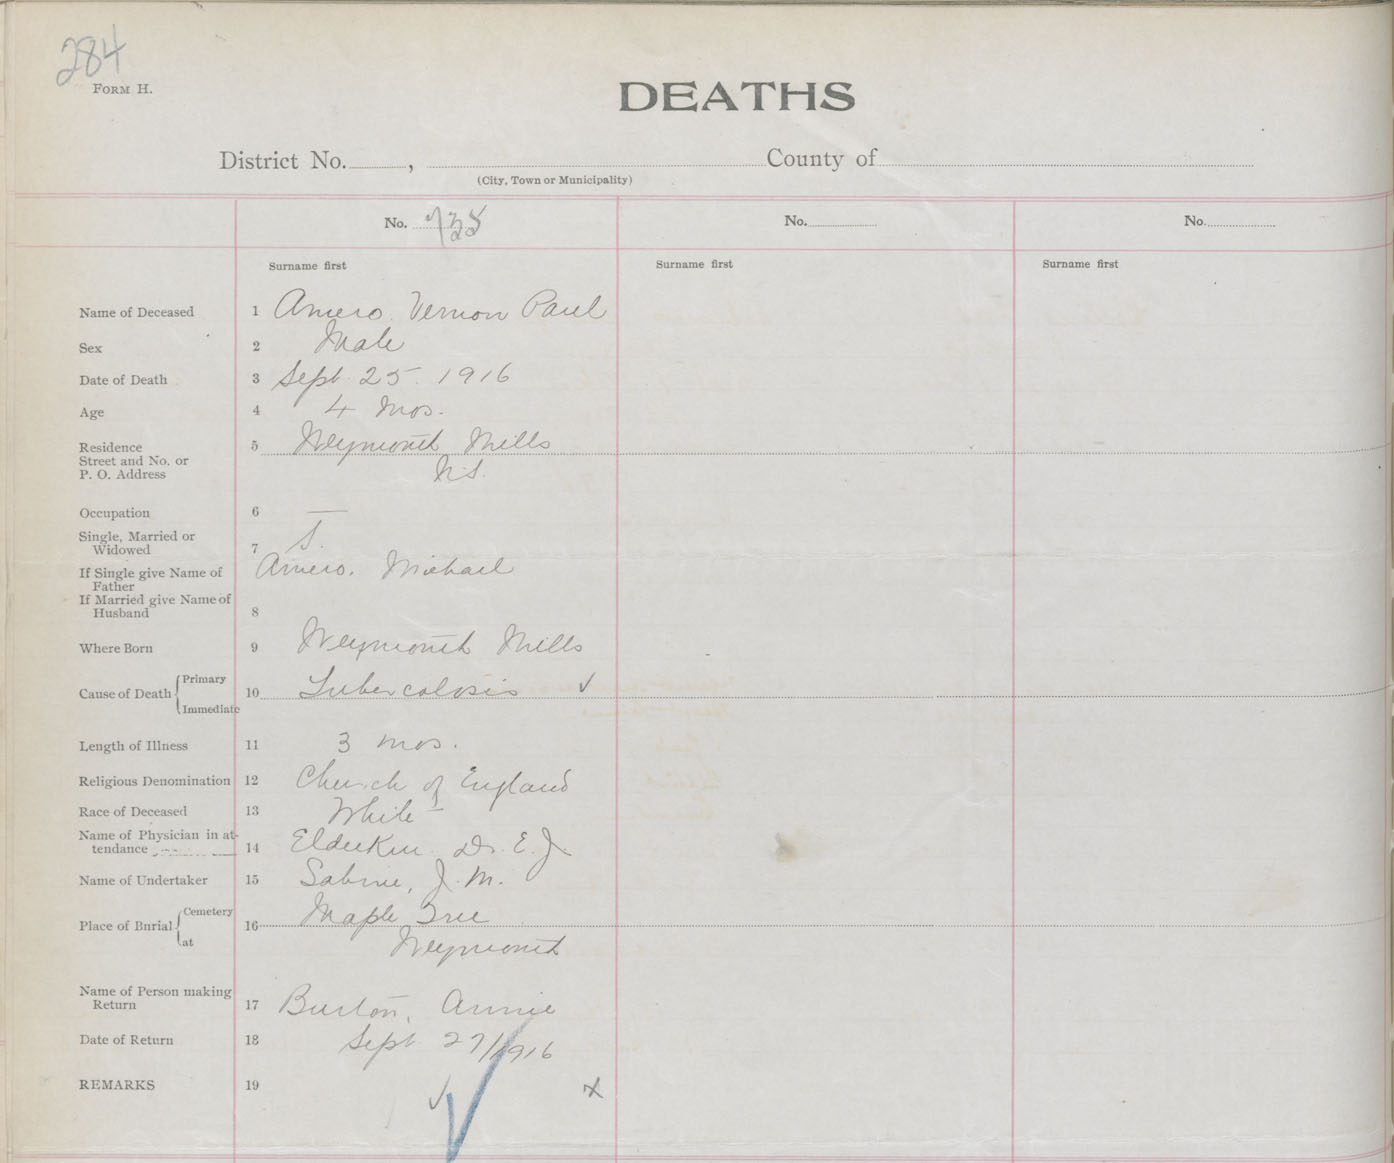 284
FORM H.
DEATHS
District No. , County of
(City, Town or Municipality)
No. 735 No. No.
Surname first Surname first Surname first
Name of Deceased 1 Amero Vernon Paul
Sex 2 Male
Date of Death 3 Sept 25. 1916
Age 4 4 mos.
Residence 5 Weymouth Mills
Street and No. or
P. O. Address N.S.
Occupation 6 —
Single, Married or
Widowed 7 S.
If Single give Name of Amero. Michael
Father
If Married give Name of
Husband 8
Where Born 9 Weymouth Mills
Cause of Death Primary 10 Tubercolosis ✓
Immediate
Length of Illness 11 3 mos.
Religious Denomination 12 Church of England
Race of Deceased 13 White
Name of Physician in at-
tendance 14 Elderkin Dr. E. J.
Name of Undertaker 15 Sabine, J. M.
Place of Burial Cemetery 16 Maple Tree
at Weymouth
Name of Person making
Return 17 Burton, Annie
Date of Return 18 Sept 27/1916
REMARKS 19 ✓ x